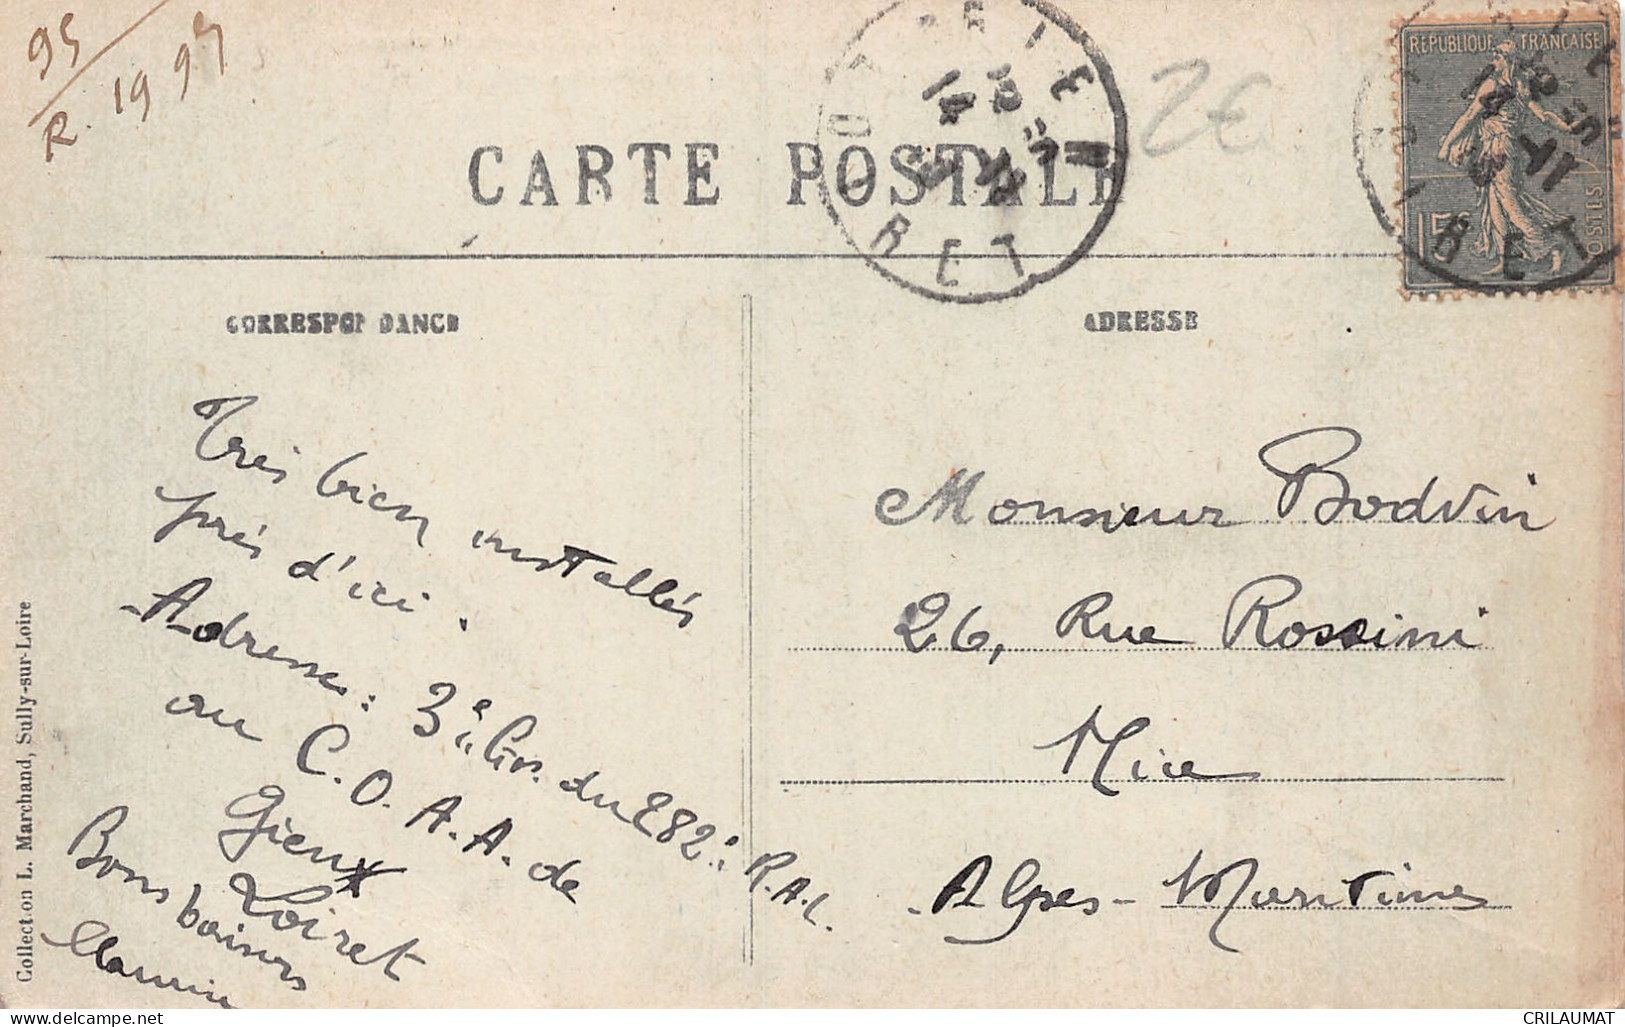 95
R. 1997
2€
CARTE POSTALE
RÉPUBLIQUE FRANÇAISE
15c
POSTES
RET
CORRESPONDANCE
ADRESSE
Très bien installés
près d'ici.
Adresse: 3è Gr. du 282è R.A.L.
au C.O.A.A. de
Gien
Loiret
Bons baisers
Monsieur Bodvin
26, Rue Rossini
Nice
Alpes-Maritimes
Collection L. Marchand, Sully-sur-Loire
delcampe.net
CRILAUMAT